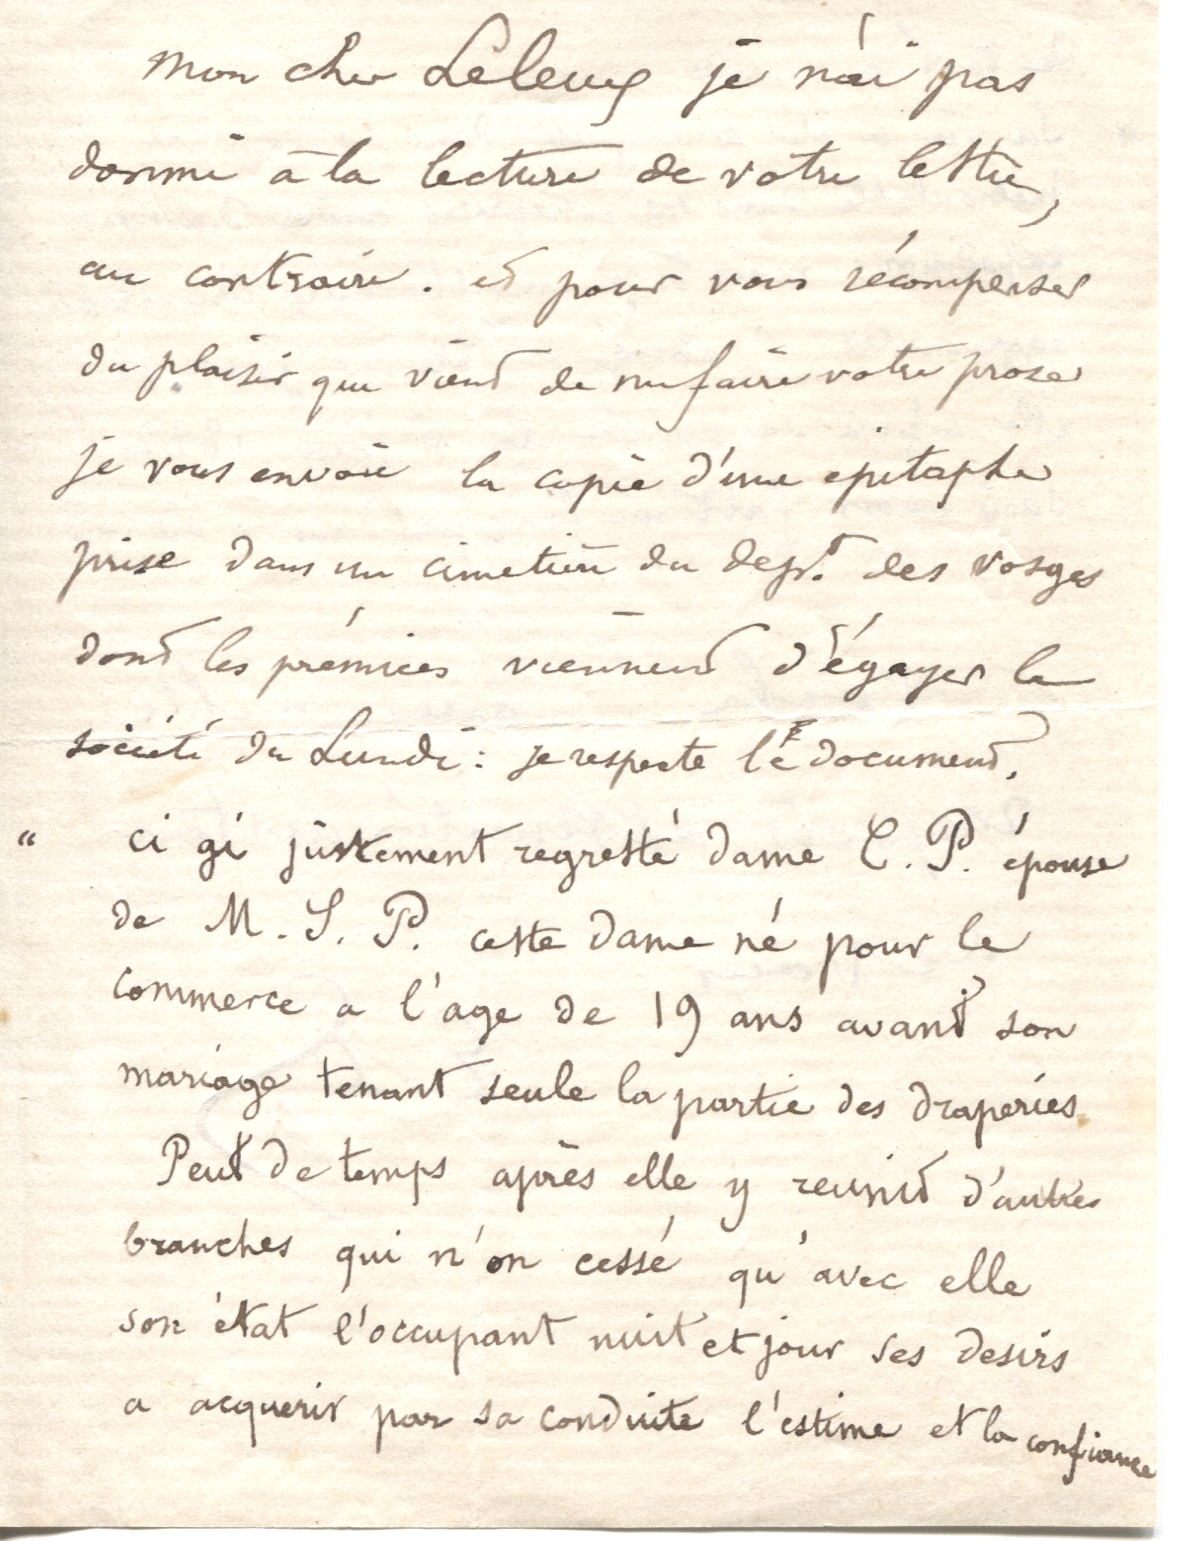 mon cher Leleux je n'ai pas
dormi à la lecture de votre lettre,
au contraire. et pour vous récompenser
du plaisir que vient de me faire votre prose
je vous envoie la copie d'une épitaphe
prise dans un cimetière du dept. des vosges
dont les prémices viennent d'égayer la
société du Lundi : je respecte le document.
" ci gi justement regretté dame C. P. épouse
de M. S. P. cette dame né pour le
commerce a l'age de 19 ans avant son
mariage tenant seule la partie des draperies
Peut de temps après elle y reunit d'autres
branches qui n'on cessé qu'avec elle
son état l'occupant nuit et jour ses desirs
a acquerir par sa conduite l'estime et la confiance